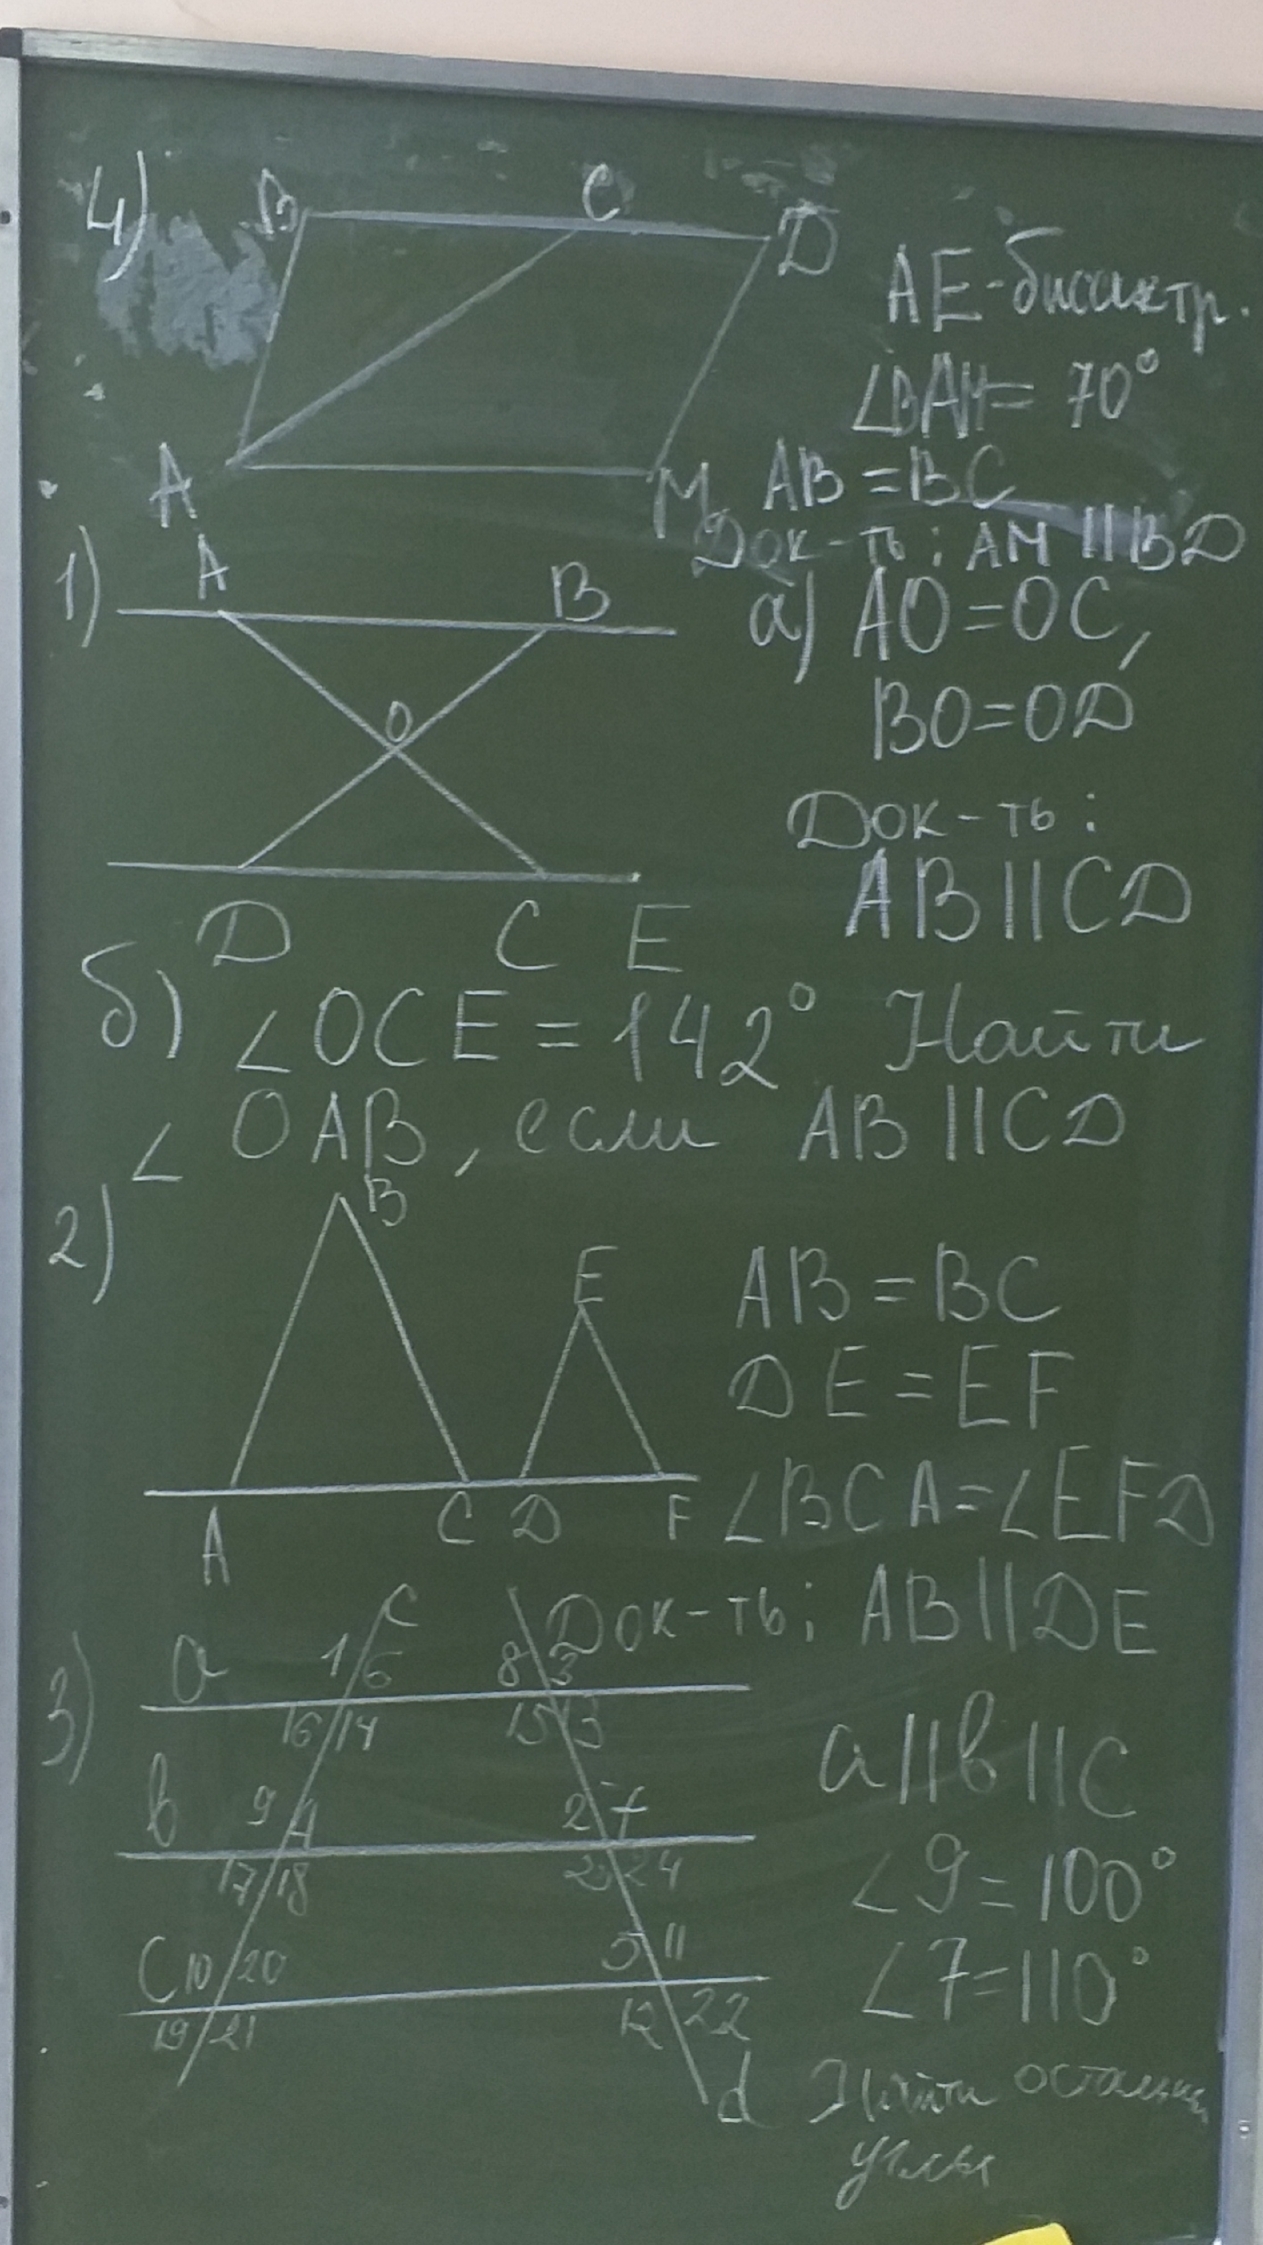 4) B C D
AE-биссектр.
∠BAM = 70°
A M AB = BC
Док-ть: AM || BD
1) A B а) AO = OC,
O BO = OD
Док-ть:
AB || CD
D C E
б) ∠OCE = 142° Найти
∠OAB, если AB || CD
2) B
E AB = BC
DE = EF
A C D F ∠BCA = ∠EFD
c Док-ть: AB || DE
3) a 1 6 8 3
16 14 15 13
a || b || c
b 9 2 7
17 18 23 24
∠9 = 100°
C 10 20 5 11
∠7 = 110°
19 21 12 22
d Найти остальные
углы